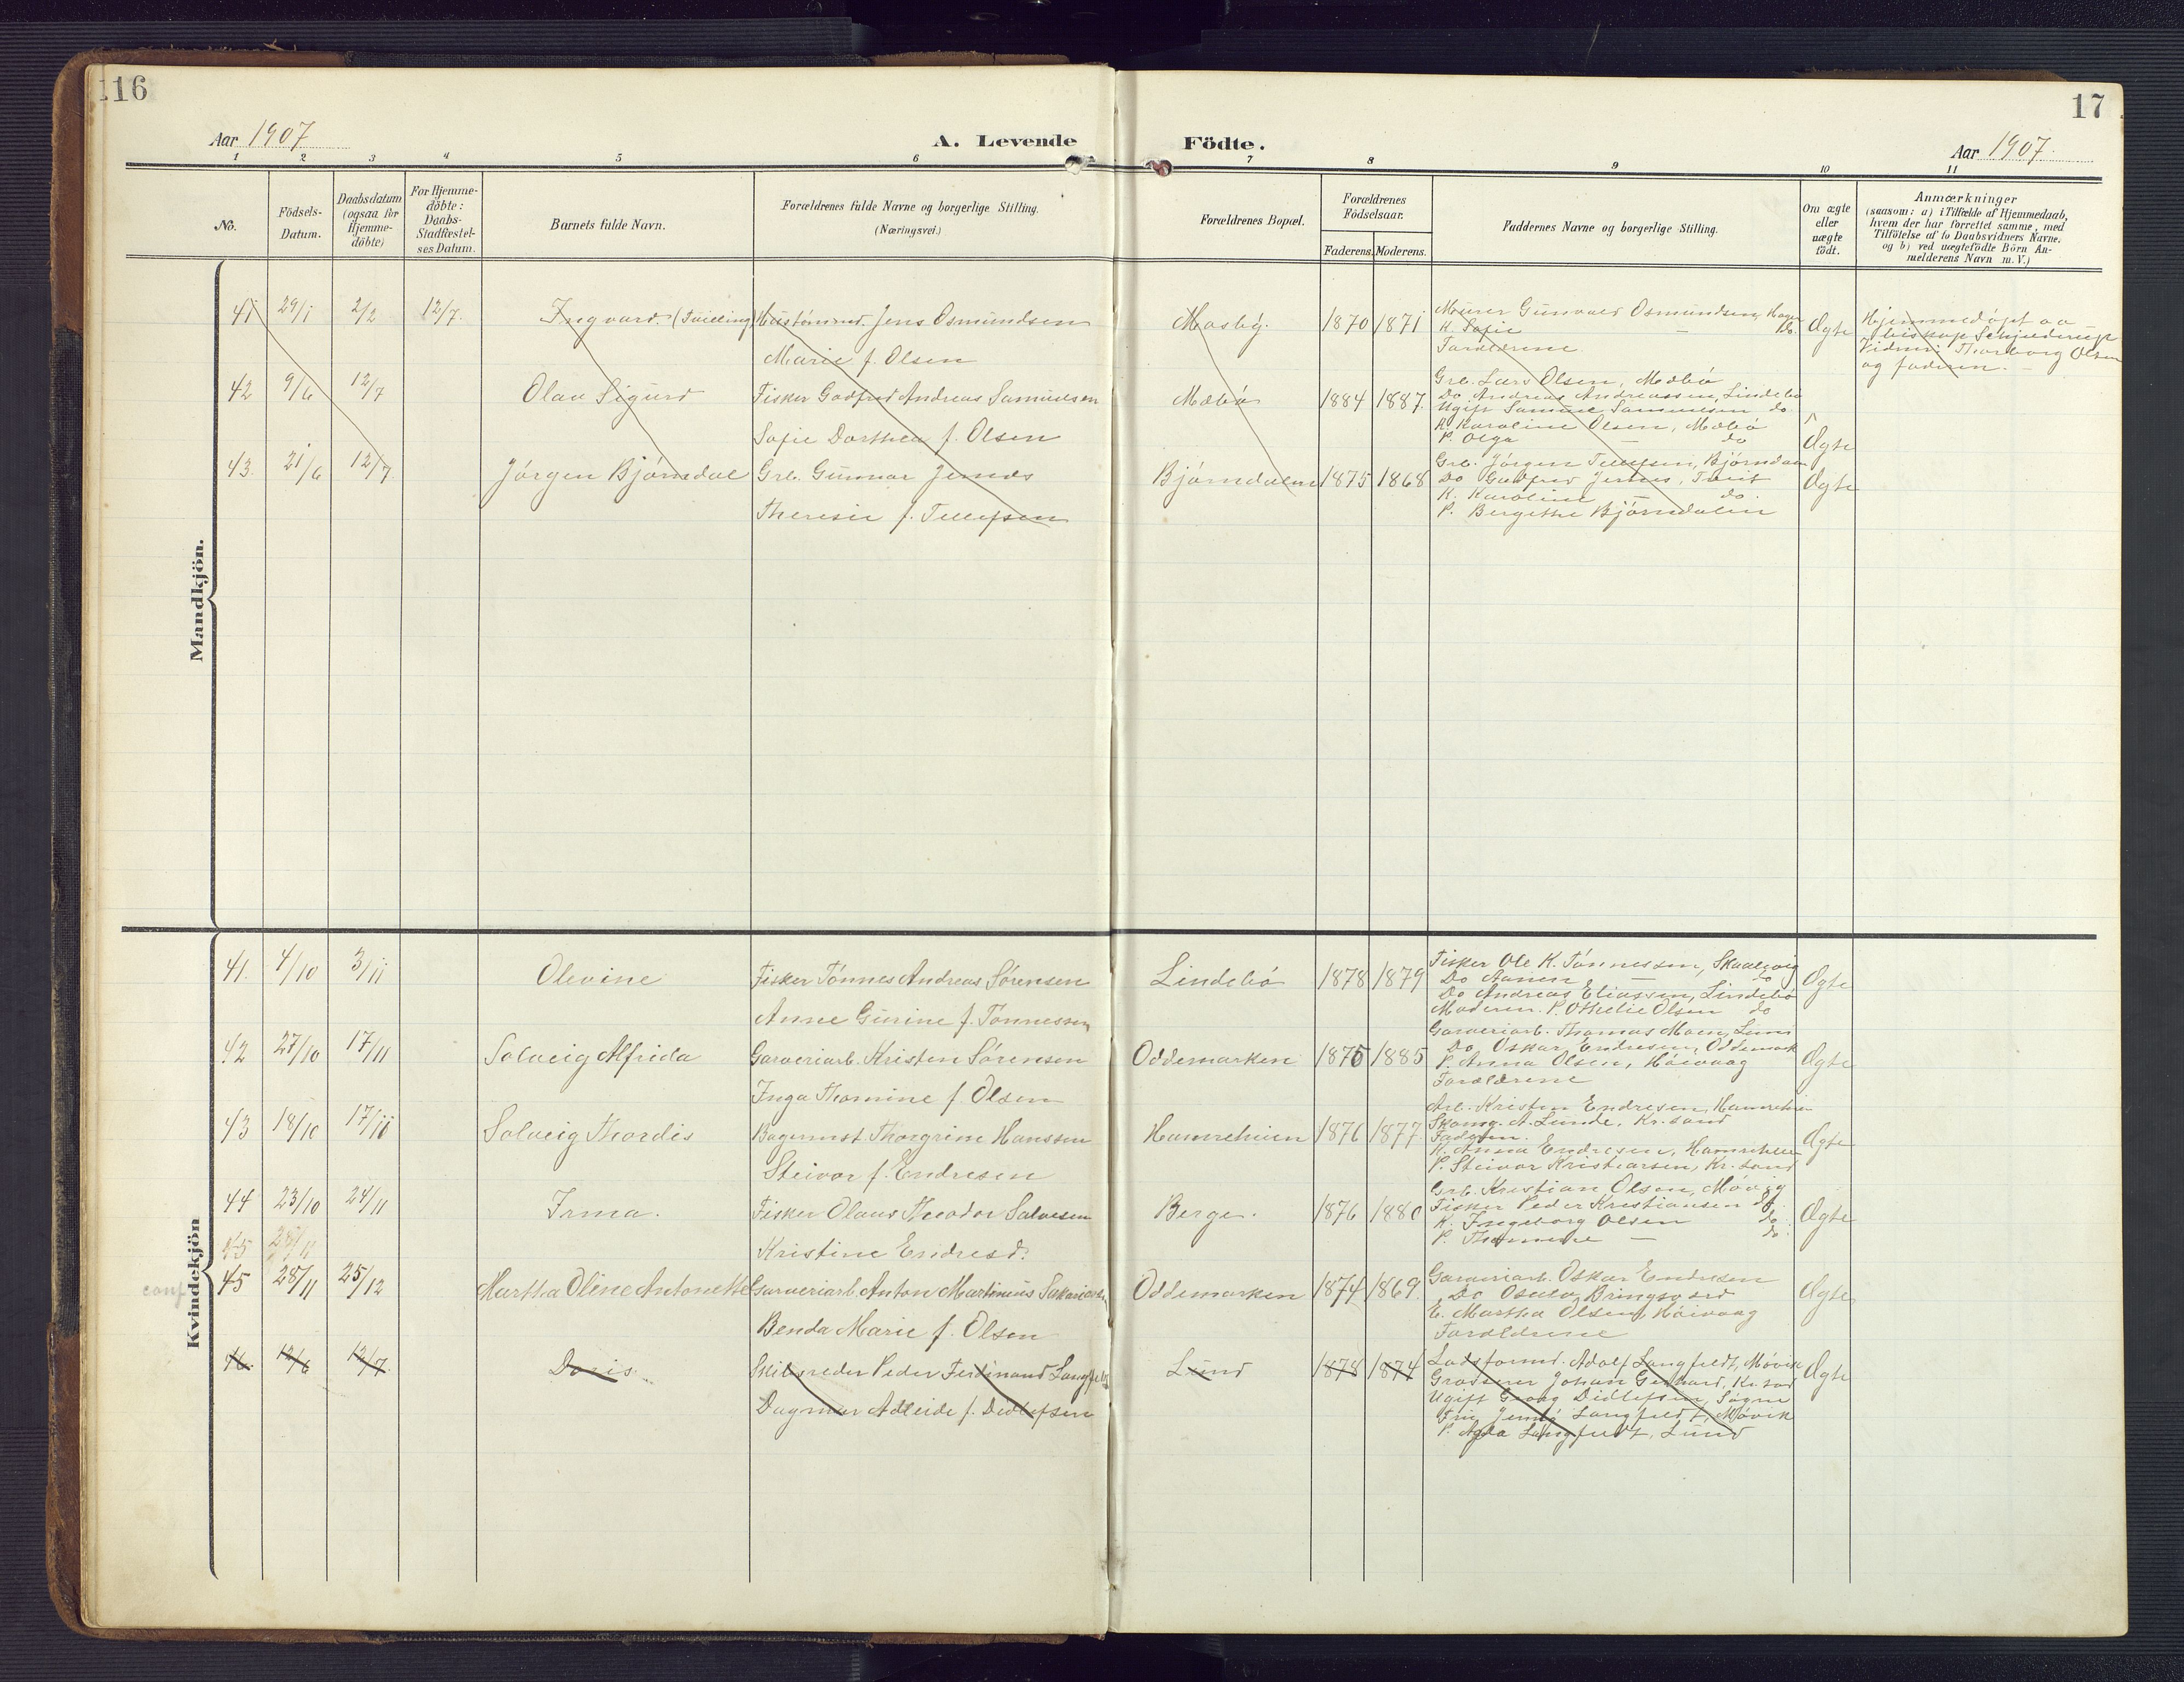 116
17
Aar 1907
A. Levende
Födte.
Aar 1907.
1 2 3 4 5 6 7 8 9 10 11
No.
Födsels-
Datum.
Daabsdatum
(ogsaa for
Hjemme-
döbte)
For Hjemme-
döbte:
Daabs-
Stadfæstel-
ses Datum.
Barnets fulde Navn.
Forældrenes fulde Navne og borgerlige Stilling.
(Næringsvei.)
Forældrenes Bopæl.
Forældrenes
Födselsaar.
Faderens. Moderens.
Faddernes Navne og borgerlige Stilling.
Om ægte
eller
uægte
födt.
Anmærkninger
(saasom: a) i Tilfælde af Hjemmedaab,
hvem der har forrettet samme, med
Tilföielse af to Daabsvidners Navne,
og b) ved uægtefödte Börn An-
melderens Navn m. V.)
Mandkjön.
41 29/1 2/2 12/7. Ingvard. (Tvilling) Hustømmd. Jens Osmundsen
Marie f. Olsen
Mosby. 1870 1871
Murer Gunvald Osmundsen,
K. Sofie — Do.
Forældrene
Ægte
Hjemmedøpt av
biskop Schjelderup
Vidner: Thorborg Olsen
og faderen. —
42 9/6 12/7 Olav Sigurd Fisker Godfred Andreas Samuelsen
Sofie Dorthea f. Olsen
Mæbø 1884 1887.
Grb. Lars Olsen, Mæbø
Do Andreas Andreassen, Lindebø
Ugift Samuel Samuelsen do.
K. Karoline Olsen, Mæbø
P. Olga — do
Ægte
43. 21/6 12/7. Jørgen Bjørndal Grb. Gunnar Jernes
Theresie f. Tellefsen
Bjørndalen 1875 1868
Grb. Jørgen Tellefsen, Bjørndalen
Do Gudfred Jernes,
K. Karoline — do.
P. Bergethe Bjørndalen
Ægte
Kvindekjön
41. 4/10 3/11 Olevine Fisker Tønnes Andreas Sørensen
Anne Gurine f. Tønnessen
Lindebø 1878 1879
Fisker Ole K. Tønnessen, Skaalevig
Do Aanen — do
Do Andreas Eliassen, Lindebø
Moderen. P. Othelie Olsen do
Ægte
42 27/10 17/11 Solveig Alfrida Garveriarb. Kristen Sørensen
Inga Thomine f. Olsen
Oddemarken 1875 1885
Garveriarb. Thomas Moen, Lund
Do Oskar Endresen, Oddemark
P. Anna Olsen, Høivaag
Forældrene
Ægte
43 18/10 17/11 Solveig Thordis Bagermst. Thorgrim Hanssen
Steivor f. Endresen
Hamreheien 1876 1877
Arb. Kristen Endresen, Hamreheien
Skomg. A. Lunde, Kr.sand
Faderen.
K. Anna Endresen, Hamreheien
P. Steivor Kristiansen, Kr.sand
Ægte
44 23/10 24/11 Irma. Fisker Olaus Theodor Salvesen
Kristine Endresd.
Berge. 1876 1880
Grb. Kristian Olsen, Møvig
Fisker Peder Kristiansen do
K. Ingeborg Olsen do
P. Thomine — do
Ægte
45 28/11
conf
45 28/11 25/12 Martha Oline Antonette Garveriarb. Anton Martinius Sakariassen
Benda Marie f. Olsen
Oddemarken 1874 1869.
Garveriarb. Oskar Endresen
Do Osuld Bringsverd
E. Martha Olsen, Høivaag
Forældrene
Ægte
46. 12/6 12/7. Doris Skibsreder Peder Ferdinand Langfeldt
Dagmar Adleide f. Ditlefsen
Lund 1878 1874
Ladsformd. Adolf Langfeldt, Møvik
Grosserer Johan Gerhard, Kr.sand
Ugift Georg Didlefsen, Søgne
Fru Jenny Langfeldt, Møvik
P. Agda Langfeldt, Lund
Ægte